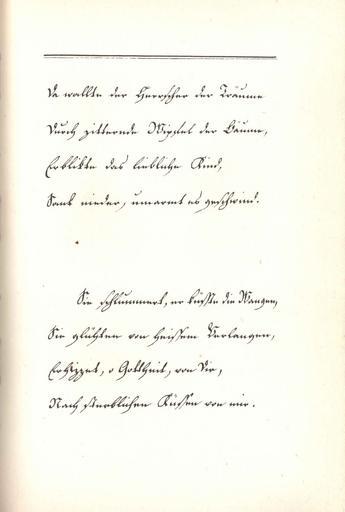 Da wallte der Herrscher der Träume
Durch zitternde Wipfel der Bäume,
Erblikte das liebliche Kind,
Sank nieder, umarmt es geschwind.
Sie schlummert, er küsste die Wangen,
Sie glühten von heissem Verlangen,
o Gottheit, von Dir,
Nach sterblichen Küssen von mir.